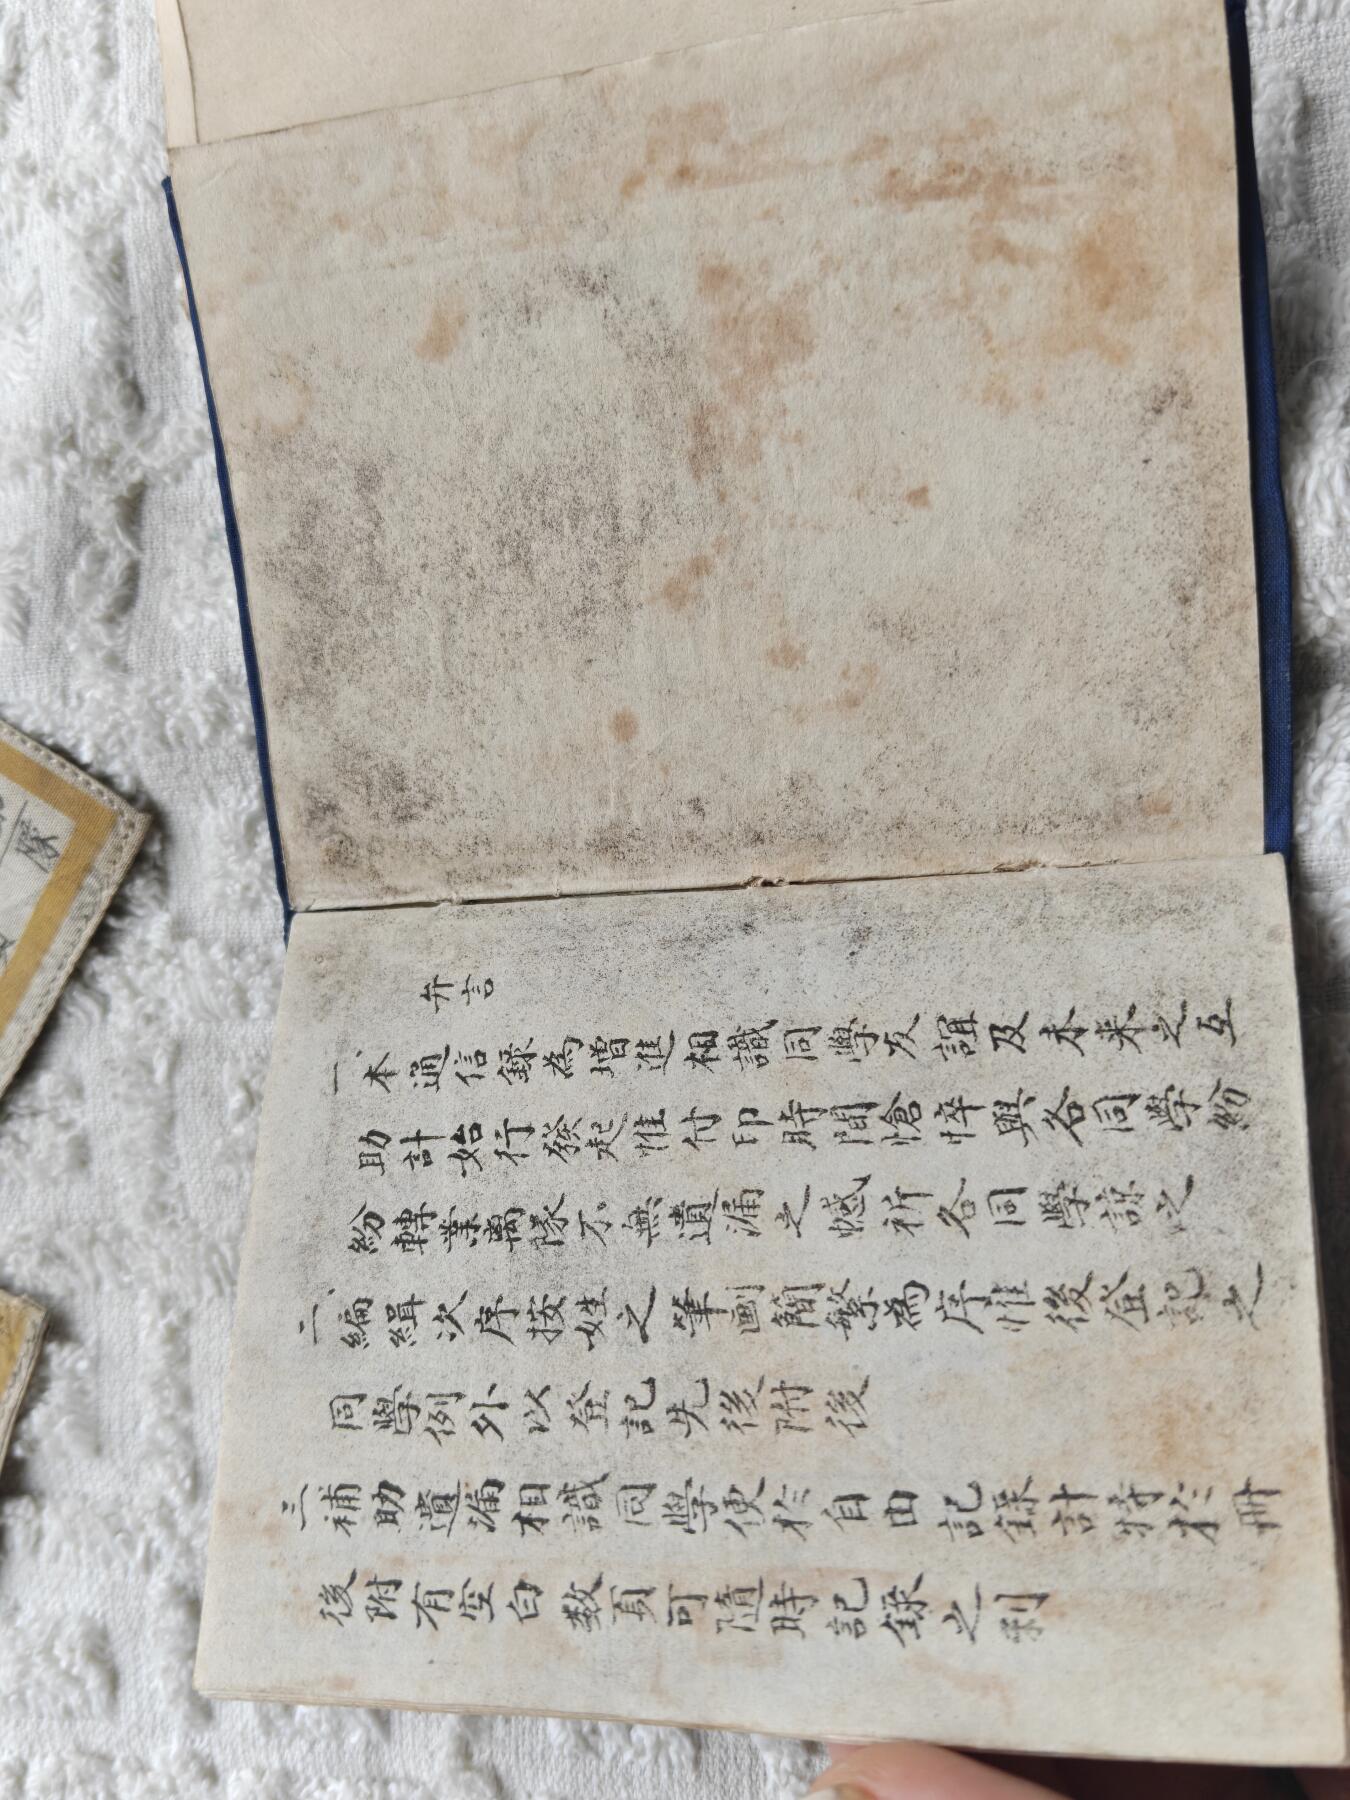 弁言
一、本通信錄為增進相識同學友誼及未来之互
助計始行發起惟付印時間愴啐與各同學紛
紛轉業离隊不無遺漏之憾祈各同學諒之
二、編緝次序按姓之筆畫簡繁為序惟後登記之
同學例外以登記先後附後
三、補助遺漏相識同學便於自由記錄計特於冊
後附有空白数頁可隨時記錄之